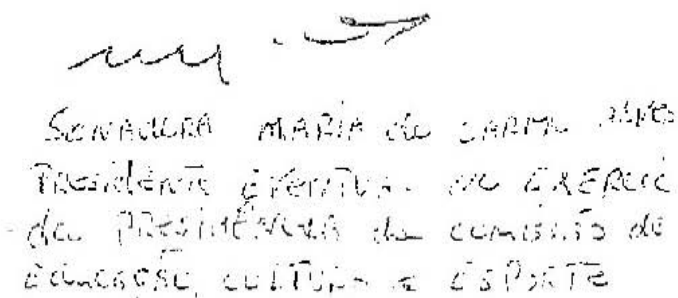 SENADORA MARIA do CARMO ALVES
PRESIDENTE EVENTUAL NO EXERCÍC
da PRESIDÊNCIA da COMISSÃO de
EDUCAÇÃO, CULTURA e ESPORTE